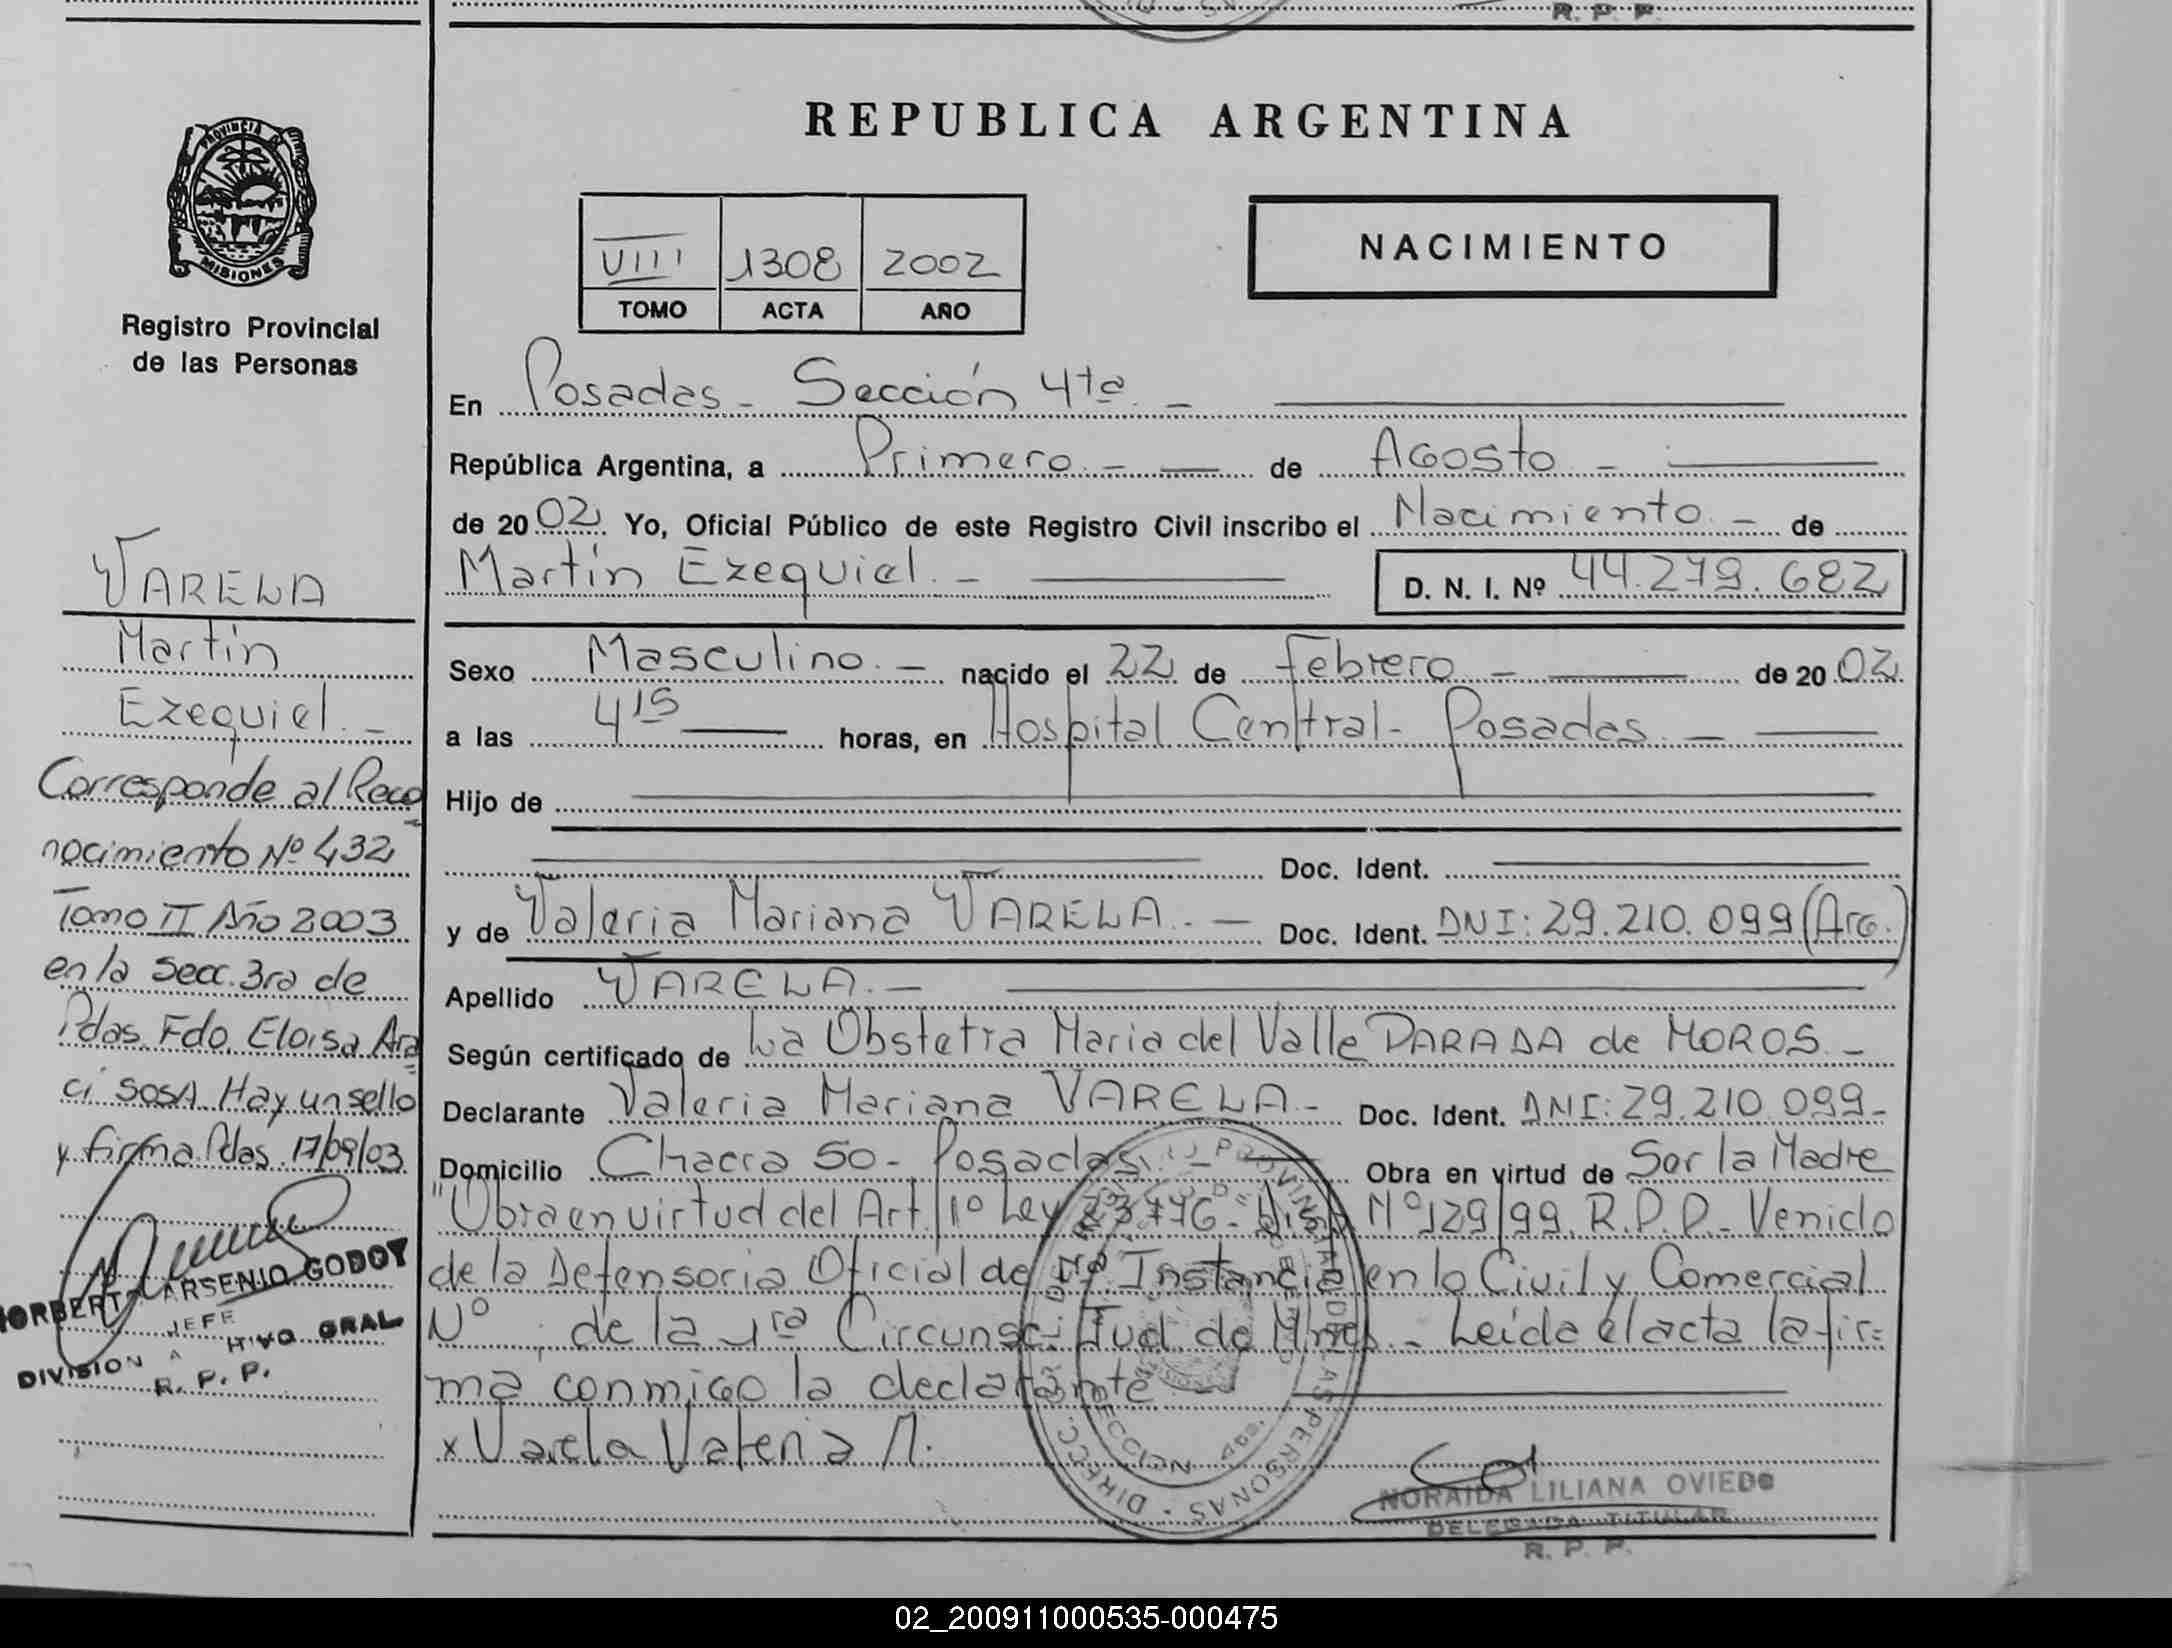 R. P. P.
REPUBLICA ARGENTINA
PROVINCIA DE
MISIONES
Registro Provincial
de las Personas
VIII 1308 2002
TOMO ACTA AÑO
NACIMIENTO
En Posadas - Sección 4ta. -
República Argentina, a Primero. - de Agosto. -
de 2002. Yo, Oficial Público de este Registro Civil inscribo el Nacimiento. - de
Martín Ezequiel. - D. N. I. Nº 44.279.682
Sexo Masculino. - nacido el 22 de febrero - de 2002.
a las 4 15 horas, en Hospital Central - Posadas. -
Hijo de
Doc. Ident.
y de Valeria Mariana VARELA. - Doc. Ident. DNI: 29.210.099 (Arg.)
Apellido VARELA. -
Según certificado de La Obstetra Maria del Valle PARADA de MOROS. -
Declarante Valeria Mariana VARELA. - Doc. Ident. DNI: 29.210.099-
Domicilio Chacra 50 - Posadas. - Obra en virtud de Ser la Madre
"Obra en virtud del Art. 1º Ley Nº 129/99. R.P.P. - Venido
de la Defensoria Oficial de Instancia en lo Civil y Comercial
Nº , de la 1ra Circunsc. Jud. de Mnes. - Leída el acta la fir=
ma conmigo la declarante
x Varela Valeria M.
NORAIDA LILIANA OVIEDO
DELEGADA TITULAR
R. P. P.
VARELA
Martín
Ezequiel. -
Corresponde al Reco
nocimiento Nº 432
Tomo II Año 2003
en la Secc. 3ra de
Pdas. Fdo. Eloisa Ara
ci SOSA. Hay un sello
y firma Pdas. 17/09/03
NORBERTO ARSENIO GODOY
JEFE
DIVISION A HIVO GRAL.
R. P. P.
02_200911000535-000475